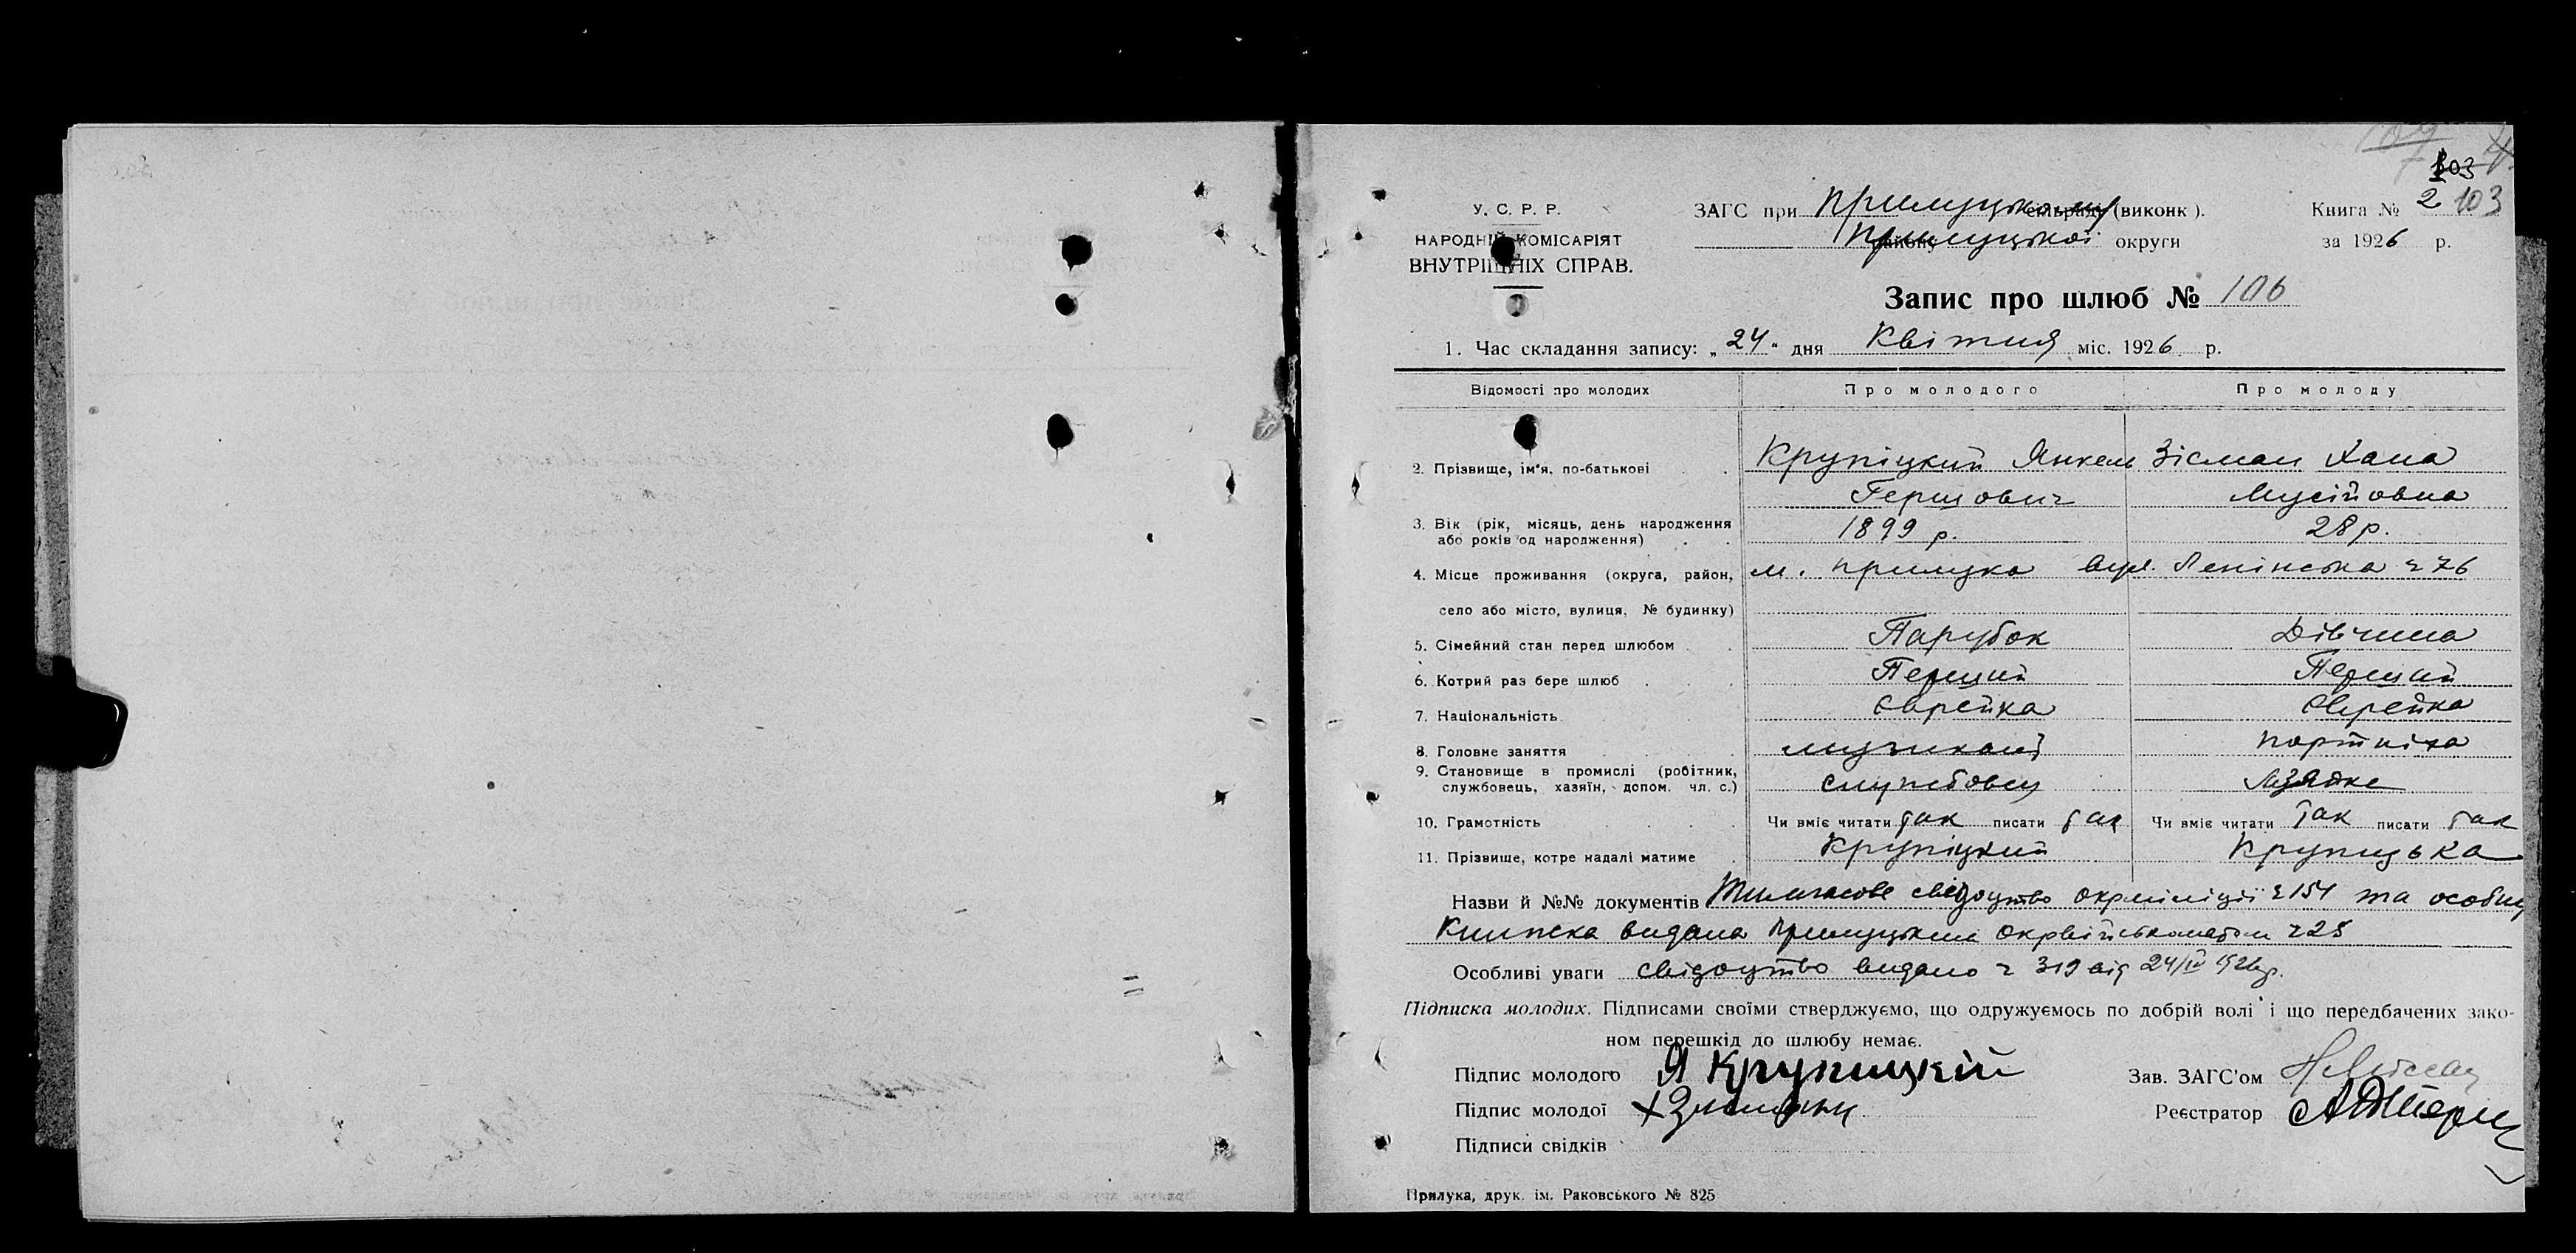 103
У. С. Р. Р.
ЗАГС при Прилуцькому сільраді (виконк ).
Книга № 2 103
НАРОДНІЙ КОМІСАРІЯТ
району Прилуцької округи
за 1926 р.
ВНУТРІШНІХ СПРАВ.
Запис про шлюб № 106
1. Час складання запису: „ 24 " дня Квітня міс. 1926 р.
Відомості про молодих Про молодого Про молоду
2. Прізвище, ім'я, по-батькові Крупіцкий Янкель Зісман Хана
Гершович Мусійовна
3. Вік (рік, місяць, день народження
або років од народження) 1899 р. 28 р.
4. Місце проживання (округа, район, м. Прилука вул. Ленінська ч 76
село або місто, вулиця, № будинку)
5. Сімейний стан перед шлюбом Парубок Дівчина
6. Котрий раз бере шлюб Перший Перший
7. Національність Єврейка Єврейка
8. Головне заняття музикант портніха
9. Становище в промислі (робітник,
службовець, хазяїн, допом. чл. с.) службовец
10. Грамотність Чи вміє читати так писати так Чи вміє читати так писати так
11. Прізвище, котре надалі матиме Крупіцкий Крупицька
Назви й №№ документів Тимчасове свідоцтво окрміліції ч 154 та особи
Книжка видана Прилуцьким Окрвійськоматом ч 28
Особливі уваги свідоцтво видано ч 319 від 24/IV 1926 р.
Підписка молодих. Підписами своїми стверджуємо, що одружуємось по добрій волі і що передбачених зако-
ном перешкід до шлюбу немає.
Підпис молодого Я Крупицкій
Зав. ЗАГС'ом
Підпис молодої Х Зисман
Реєстратор
Підписи свідків
Прилука, друк. ім. Раковського № 825